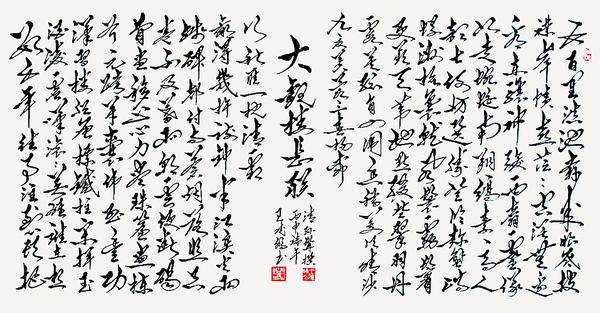 五百里滇池奔来眼底披
襟岸帻喜茫茫空阔无边
看东骧神骏西翥灵仪
北走蜿蜒南翔缟素高人
韵士何妨选胜登临趁蟹屿
螺洲梳裹就风鬟雾鬓
更苹天苇地点缀些翠羽丹
霞莫孤负四围香稻万顷晴沙
九夏芙蓉三春杨柳
大观楼长联
清孙髯撰
丙申端午
数千年往事注到心头把
酒凌虚叹滚滚英雄谁在想
汉习楼船唐标铁柱宋挥玉
斧元跨革囊伟烈丰功
费尽移山心力尽珠帘画栋
卷不及暮雨朝云便断碣
残碑都付与苍烟落照只
赢得几杵疏钟半江渔火两
行秋雁一枕清霜